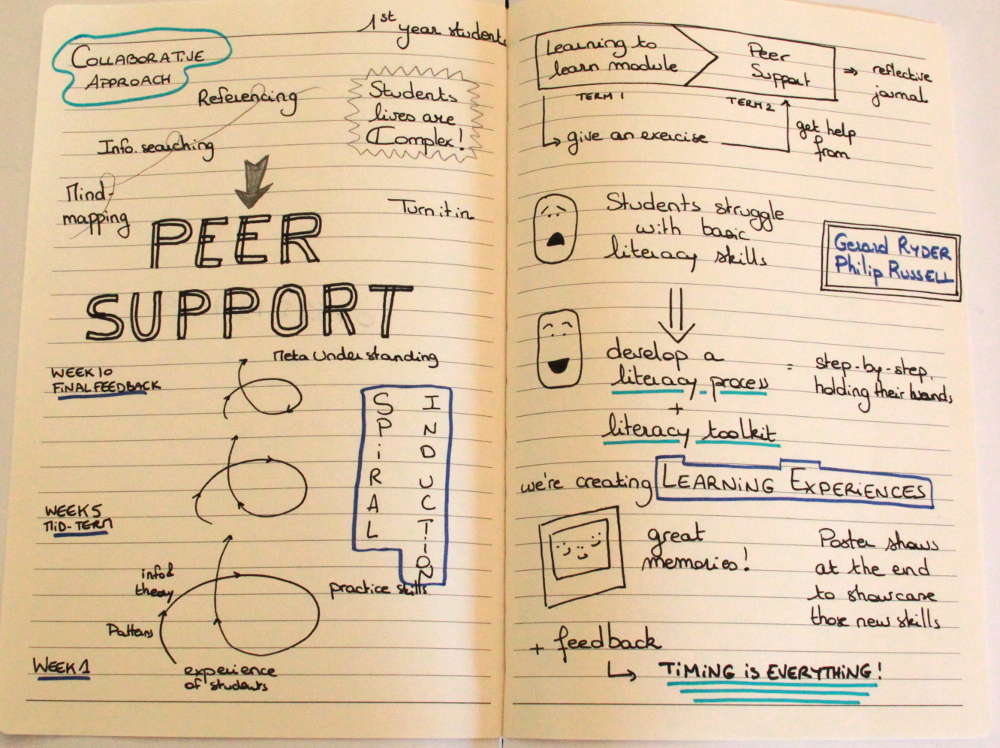 1st year students
COLLABORATIVE
APPROACH
Referencing
Students
lives are
Complex!
Info. searching
Mind-
mapping
Turn it in
PEER
SUPPORT
Meta Understanding
WEEK 10
FINAL FEEDBACK
SPIRAL
INDUCTION
WEEK 5
MID-TERM
info &
theory
practice skills
Pattens
WEEK 1
experience
of students
Learning to
learn module
Peer
Support
⇒ reflective
journal
TERM 1
TERM 2
give an exercise
get help
from
Students struggle
with basic
literacy skills
Gerard RYDER
Philip RUSSELL
develop a
literacy process
= step-by-step,
holding their hands
+
literacy toolkit
we're creating LEARNING EXPERIENCES
great
memories!
Poster shows
at the end
to showcase
those new skills
+ feedback
TIMING IS EVERYTHING!